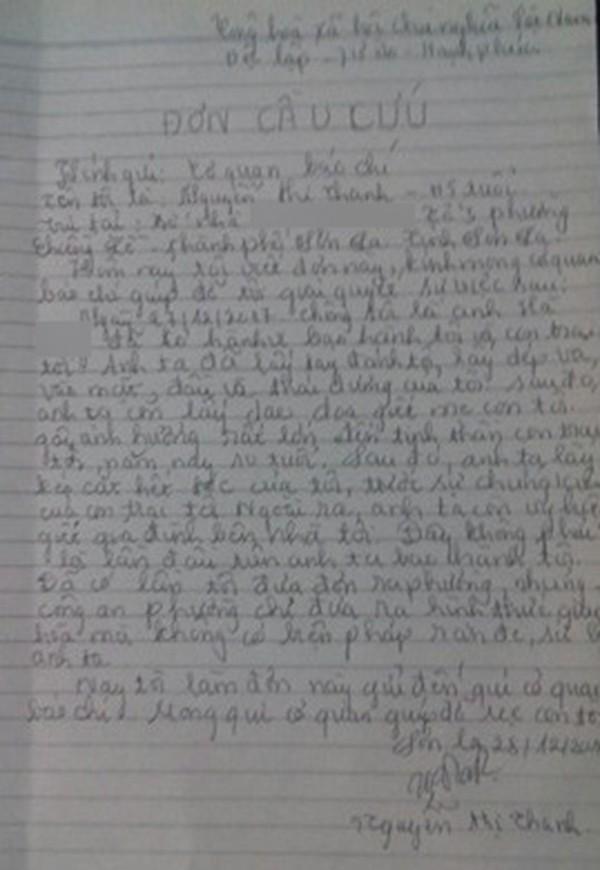 Cộng hoà xã hội chủ nghĩa Việt Nam
Độc lập - Tự do - Hạnh phúc
ĐƠN CẦU CỨU
Kính gửi: Cơ quan báo chí
Tên tôi là: Nguyễn Thị Thanh - tuổi
trú tại: số nhà tổ 5 phường
Chiềng Lề - thành phố Sơn La tỉnh Sơn La.
Hôm nay tôi viết đơn này, kính mong cơ quan
báo chí giúp đỡ tôi giải quyết sự việc sau:
Ngày 27/12/2017 chồng tôi là anh Hà
đã có hành vi bạo hành tôi và con trai
tôi. Anh ta đã lấy tay đánh tôi, lấy dép vả,
vào mặt, đầu và thái dương của tôi. Sau đó,
anh ta còn lấy dao dọa giết mẹ con tôi.
gây ảnh hưởng rất lớn đến tinh thần con trai
tôi, năm nay tuổi. Sau đó, anh ta lấy
kéo cắt hết tóc của tôi, trước sự chứng kiến
của con trai tôi. Ngoài ra, anh ta còn
giết gia đình bên nhà tôi. Đây không phải
là lần đầu tiên anh ta bạo hành tôi.
Đã có lần tôi đưa đơn ra phường, nhưng
công an phường chỉ đưa ra hình thức
hòa mà không có biện pháp răn đe, xử lý
anh ta.
Nay tôi làm đơn này gửi đến quí cơ quan
báo chí. Mong quí cơ quan giúp đỡ mẹ con tôi
Sơn La, 28/12/201
Nguyễn Thị Thanh